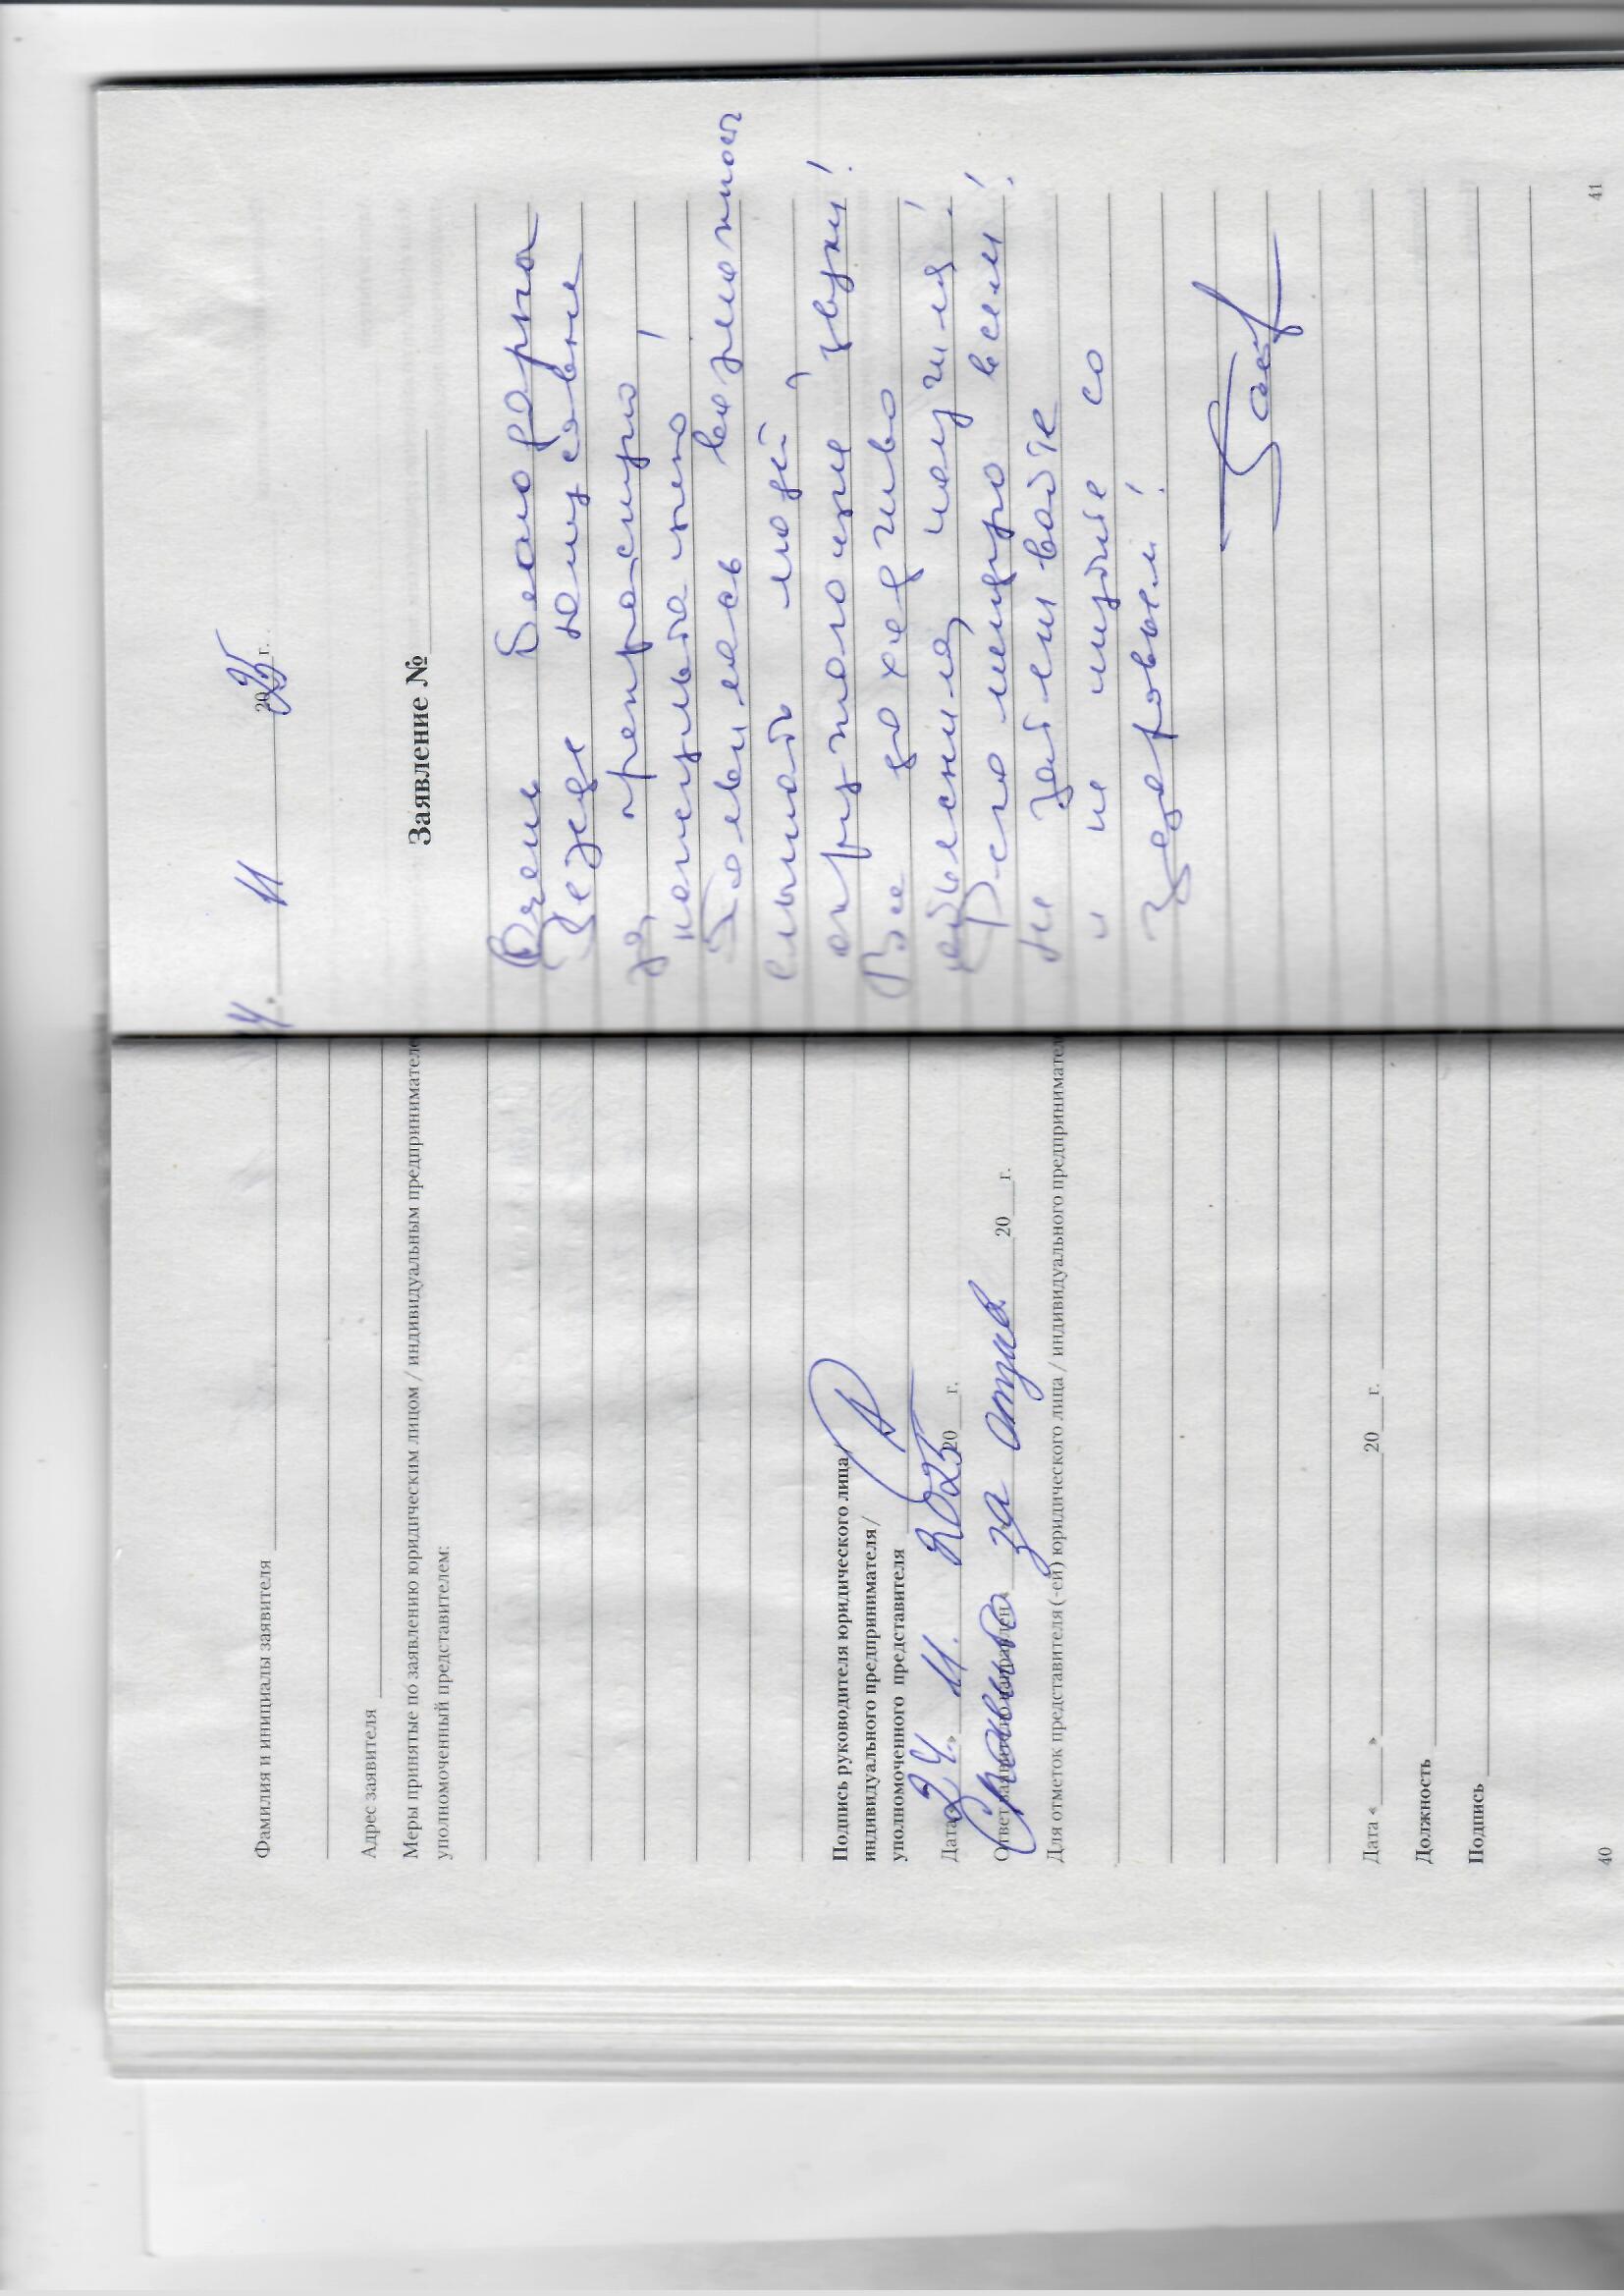 Фамилия и инициалы заявителя
Адрес заявителя
Меры принятые по заявлению юридическим лицом / индивидуальным предпринимателе
уполномоченный представителем:
Подпись руководителя юридического лица/
индивидуального предпринимателя /
уполномоченного представителя
Дата « 24. » 11. 2025 20 г.
Ответ заявителю направлен « 20 г.
Спасибо за отзыв
Для отметок представителя ( -ей) юридического лица / индивидуального предпринимател
Дата « » 20 г.
Должность
Подпись
40
24. » 11 2025 г.
Заявление №
Очень благодарна
за прекрасную
консультацию!
Появилась возможность
слышать людей,
окружающие звуки!
Все доходчиво
объяснила, научила!
Рекомендую всем!
Не затягивайте
и не шутите со
Здоровьем!
41